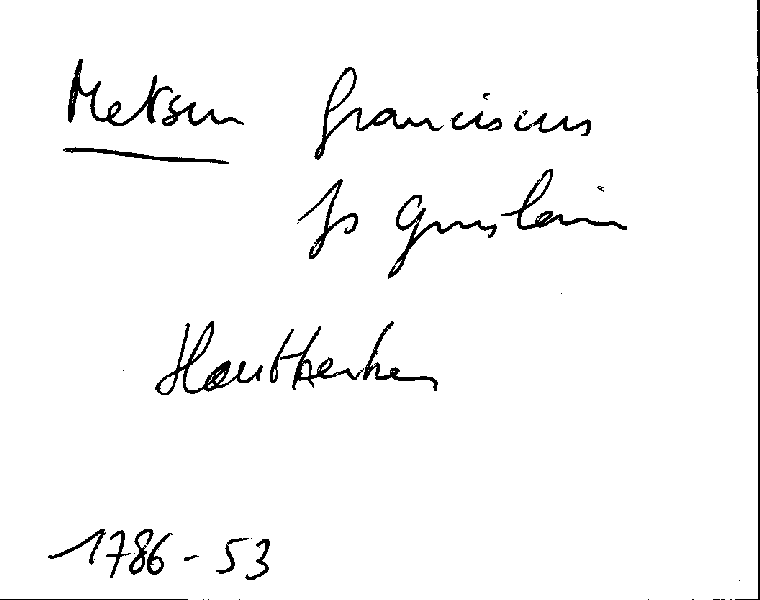 Metsu Franciscus
Js Guislain
Houtkerke
1786 - 53